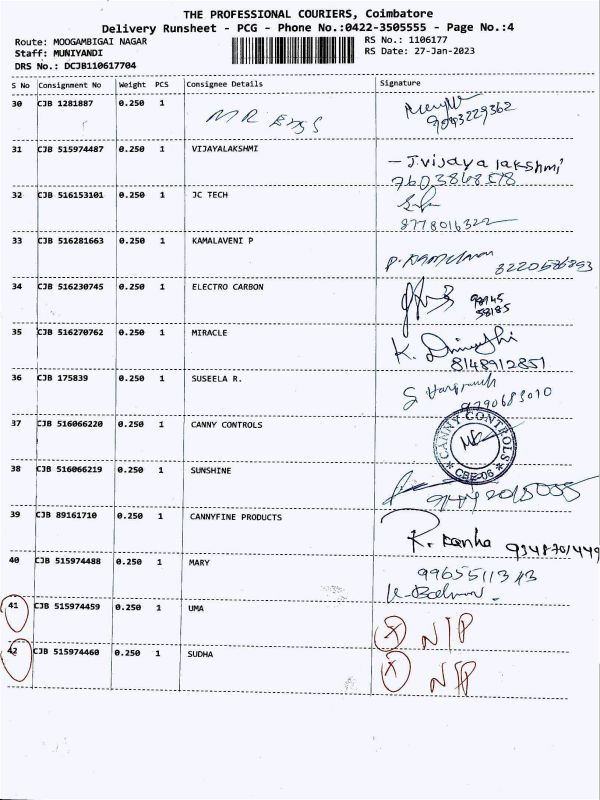 THE PROFESSIONAL COURIERS, Coimbatore
Delivery Runsheet - PCG - Phone No.:0422-3505555 - Page No.:4
Route: MOOGAMBIGAI NAGAR
RS No.: 1106177
Staff: MUNIYANDI
RS Date: 27-Jan-2023
DRS No.: DCJB110617704
S No Consignment No Weight PCS Consignee Details Signature
30 CJB 1281887 0.250 1 MR Engs
31 CJB 515974487 0.250 1 VIJAYALAKSHMI
- J.vijayalakshmi
32 CJB 516153101 0.250 1 JC TECH
8778016322
33 CJB 516281663 0.250 1 KAMALAVENI P
34 CJB 516230745 0.250 1 ELECTRO CARBON
35 CJB 516270762 0.250 1 MIRACLE
K.
8148912851
36 CJB 175839 0.250 1 SUSEELA R.
37 CJB 516066220 0.250 1 CANNY CONTROLS
CANNY CONTROLS
CBE-06
38 CJB 516066219 0.250 1 SUNSHINE
39 CJB 89161710 0.250 1 CANNYFINE PRODUCTS
R. Kanha
40 CJB 515974488 0.250 1 MARY
41 CJB 515974459 0.250 1 UMA
X N/P
42 CJB 515974460 0.250 1 SUDHA
X N/P